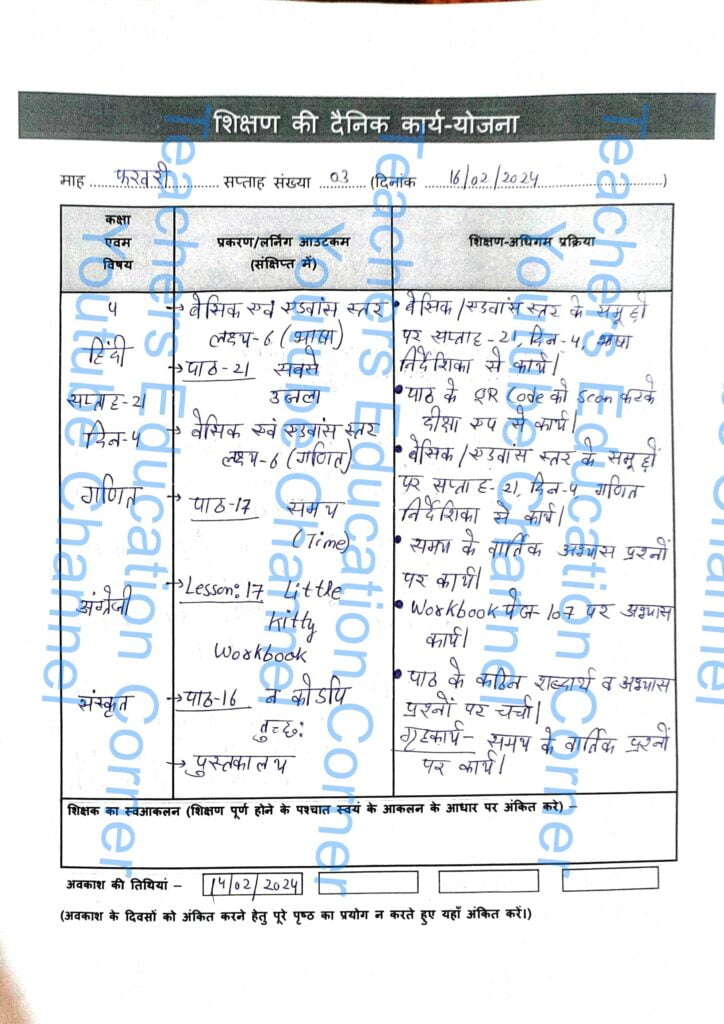 शिक्षण की दैनिक कार्य-योजना
माह ....फरवरी.... सप्ताह संख्या ..03.. (दिनांक ....16/02/2024....)
कक्षा एवम विषय
प्रकरण/लर्निंग आउटकम (संक्षिप्त में)
शिक्षण-अधिगम प्रक्रिया
5
हिंदी
सप्ताह-21
दिन-4
गणित
अंग्रेजी
संस्कृत
→ बेसिक एवं एडवांस स्तर
लक्ष्य-6 (भाषा)
→ पाठ-21 सबसे
उजला
→ बेसिक एवं एडवांस स्तर
लक्ष्य-6 (गणित)
→ पाठ-17 समय
(Time)
→ Lesson: 17 Little
Kitty
Workbook
→ पाठ-16 न कोऽपि
तुच्छः
→ पुस्तकालय
• बेसिक/एडवांस स्तर के समूहों
पर सप्ताह-21, दिन-4, भाषा
निर्देशिका से कार्य।
• पाठ के QR Code को Scan करके
दीक्षा एप से कार्य।
• बेसिक/एडवांस स्तर के समूहों
पर सप्ताह-21, दिन-4 गणित
निर्देशिका से कार्य।
• समय के वार्तिक अभ्यास प्रश्नों
पर कार्य।
• Workbook पेज-107 पर अभ्यास
कार्य।
• पाठ के कठिन शब्दार्थ व अभ्यास
प्रश्नों पर चर्चा।
गृहकार्य- समय के वार्तिक प्रश्नों
पर कार्य।
शिक्षक का स्वआकलन (शिक्षण पूर्ण होने के पश्चात स्वयं के आकलन के आधार पर अंकित करे) –
अवकाश की तिथियां – 14/02/2024
(अवकाश के दिवसों को अंकित करने हेतु पूरे पृष्ठ का प्रयोग न करते हुए यहाँ अंकित करें।)
Teachers Education Corner
Youtube Channel
Teachers Education Corner
Youtube Channel
Teachers Education Corner
Youtube Channel